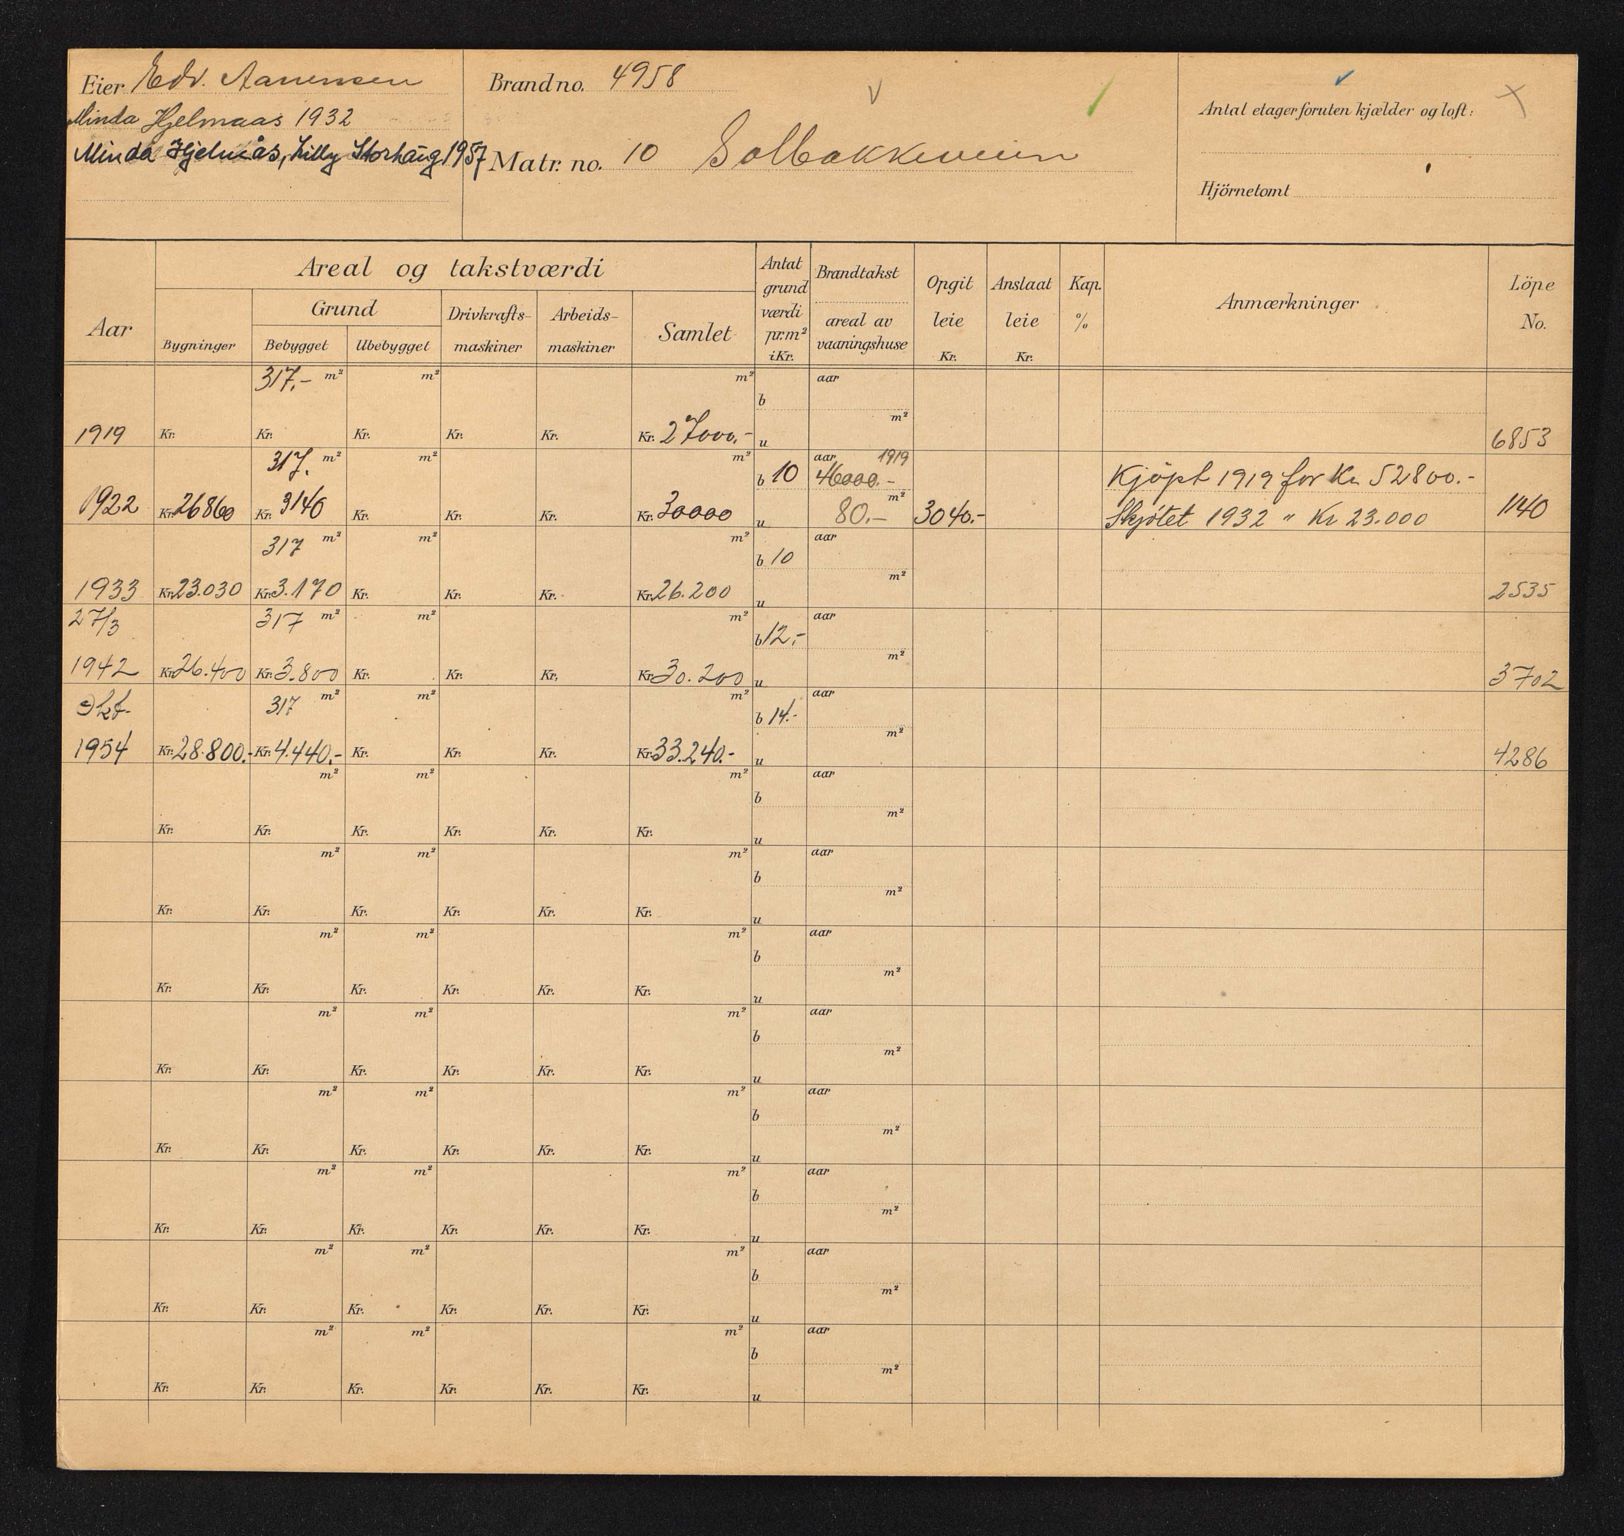 Eier Edv. Aanensen
Minda Hjelmaas 1932
Minda Hjelmås, Lilly Storhaug 1957
Brand no. 4958
Matr. no. 10 Solbakkeveien
Antal etager foruten kjælder og loft:
Hjörnetomt
Aar
Areal og takstværdi
Bygninger
Grund
Bebygget
Ubebygget
Drivkrafts-
maskiner
Arbeids-
maskiner
Samlet
Antat
grund
værdi
pr.m²
i Kr.
Brandtakst
areal av
vaaningshuse
Opgit
leie
Kr.
Anslaat
leie
Kr.
Kap.
%
Anmærkninger
Löpe
No.
317.- m² m² m² b aar
m²
1919 Kr. Kr. Kr. Kr. Kr. Kr. 27000.- u 6853
317. m² m² m² b 10 aar 1919 46000.- Kjöpt 1919 for Kr. 52800.-
1922 Kr. 26860 Kr. 3140 Kr. Kr. Kr. Kr. 30000 u 80.- m² 3040.- Skjøtet 1932 " Kr 23.000 1140
317 m² m² m² b 10 aar
m²
1933 Kr. 23.030 Kr. 3.170 Kr. Kr. Kr. Kr. 26.200 u 2535
27/3 317 m² m² m² b 12,- aar
m²
1942 Kr. 26.400 Kr. 3.800 Kr. Kr. Kr. Kr. 30.200 u 3702
317 m² m² m² b 14.- aar
m²
1954 Kr. 28.800.- Kr. 4.440.- Kr. Kr. Kr. Kr. 33.240.- u 4286
m² m² m² b aar
m²
Kr. Kr. Kr. Kr. Kr. Kr. u
m² m² m² b aar
m²
Kr. Kr. Kr. Kr. Kr. Kr. u
m² m² m² b aar
m²
Kr. Kr. Kr. Kr. Kr. Kr. u
m² m² m² b aar
m²
Kr. Kr. Kr. Kr. Kr. Kr. u
m² m² m² b aar
m²
Kr. Kr. Kr. Kr. Kr. Kr. u
m² m² m² b aar
m²
Kr. Kr. Kr. Kr. Kr. Kr. u
m² m² m² b aar
m²
Kr. Kr. Kr. Kr. Kr. Kr. u
m² m² m² b aar
m²
Kr. Kr. Kr. Kr. Kr. Kr. u